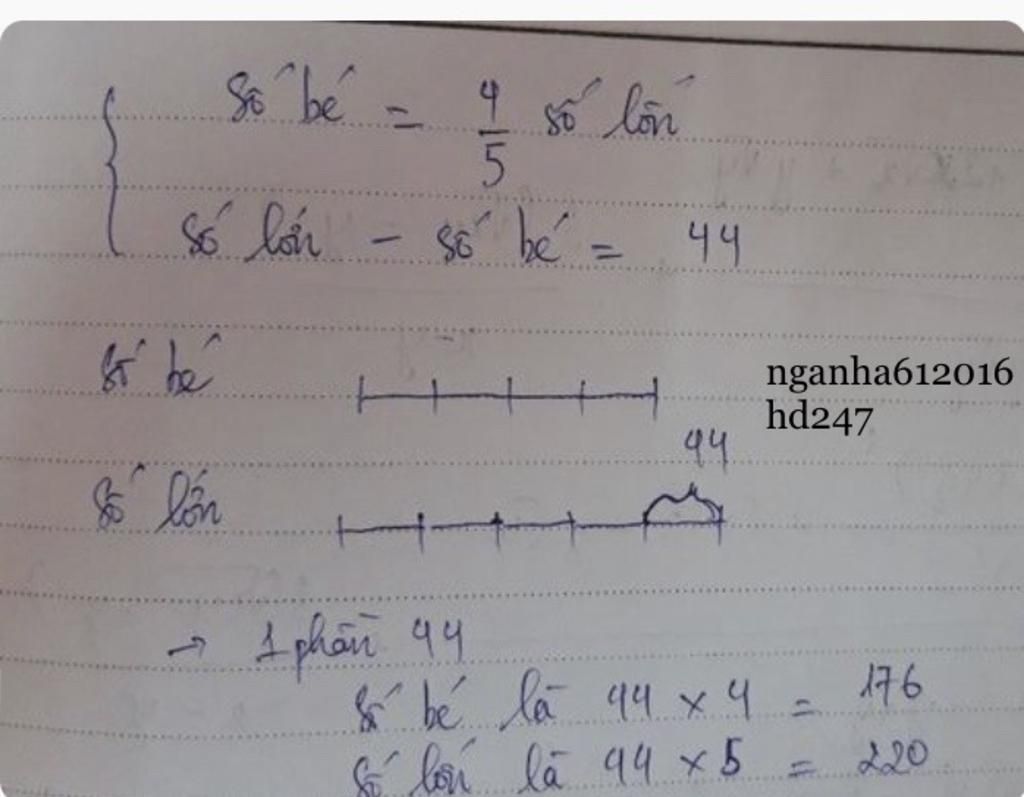 số bé = 4/5 số lớn
số lớn - số bé = 44
số bé
nganha612016
hd247
44
số lớn
→ 1 phần 44
số bé là 44 × 4 = 176
số lớn là 44 × 5 = 220